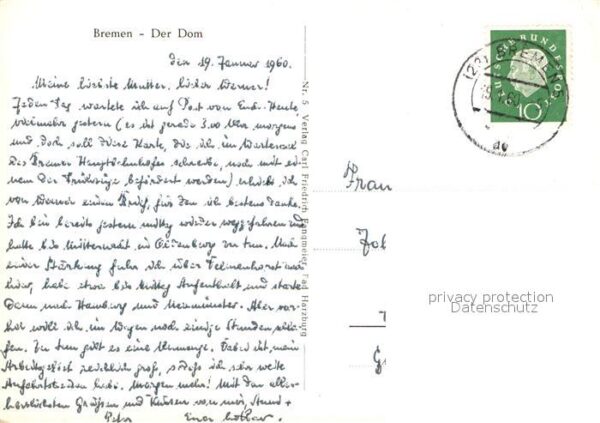 Bremen - Der Dom
den 19. Januar 1960.
Meine liebste Mutter, lieber Werner!
Jeden Tag wartete ich auf Post von Euch. Heute
vielmehr gestern (es ist gerade 3.00 Uhr morgens
und doch soll diese Karte, die ich im Wartesaal
des Bremer Hauptbahnhofes schreibe, noch mit ei-
nem der Frühzüge befördert werden) erhielt ich
von Werner einen Brief, für den ich bestens danke.
Ich bin bereits gestern mittag wieder weggefahren,
hatte bis Mitternacht in Oldenburg zu tun. Nach
einer Stärkung fuhr ich über Delmenhorst
hier, habe etwa bis Mittag Aufenthalt und starte
dann nach Hamburg und Neumünster. Aber vor-
her will ich im Wagen noch einige Stunden schla-
fen. Zu tun gibt es eine Unmenge. Dabei ist mein
Arbeitsgebiet reichlich groß, sodaß ich sehr weite
Anfahrtszeiten habe. Morgen mehr! Mit den aller-
herzlichsten Grüßen und Küssen von mir, +
Euer
Nr. 5 Verlag Carl Friedrich Fangmeier, Bad Harzburg
DEUTSCHE BUNDESPOST
10
(23) BREMEN
Frau
privacy protection
Datenschutz